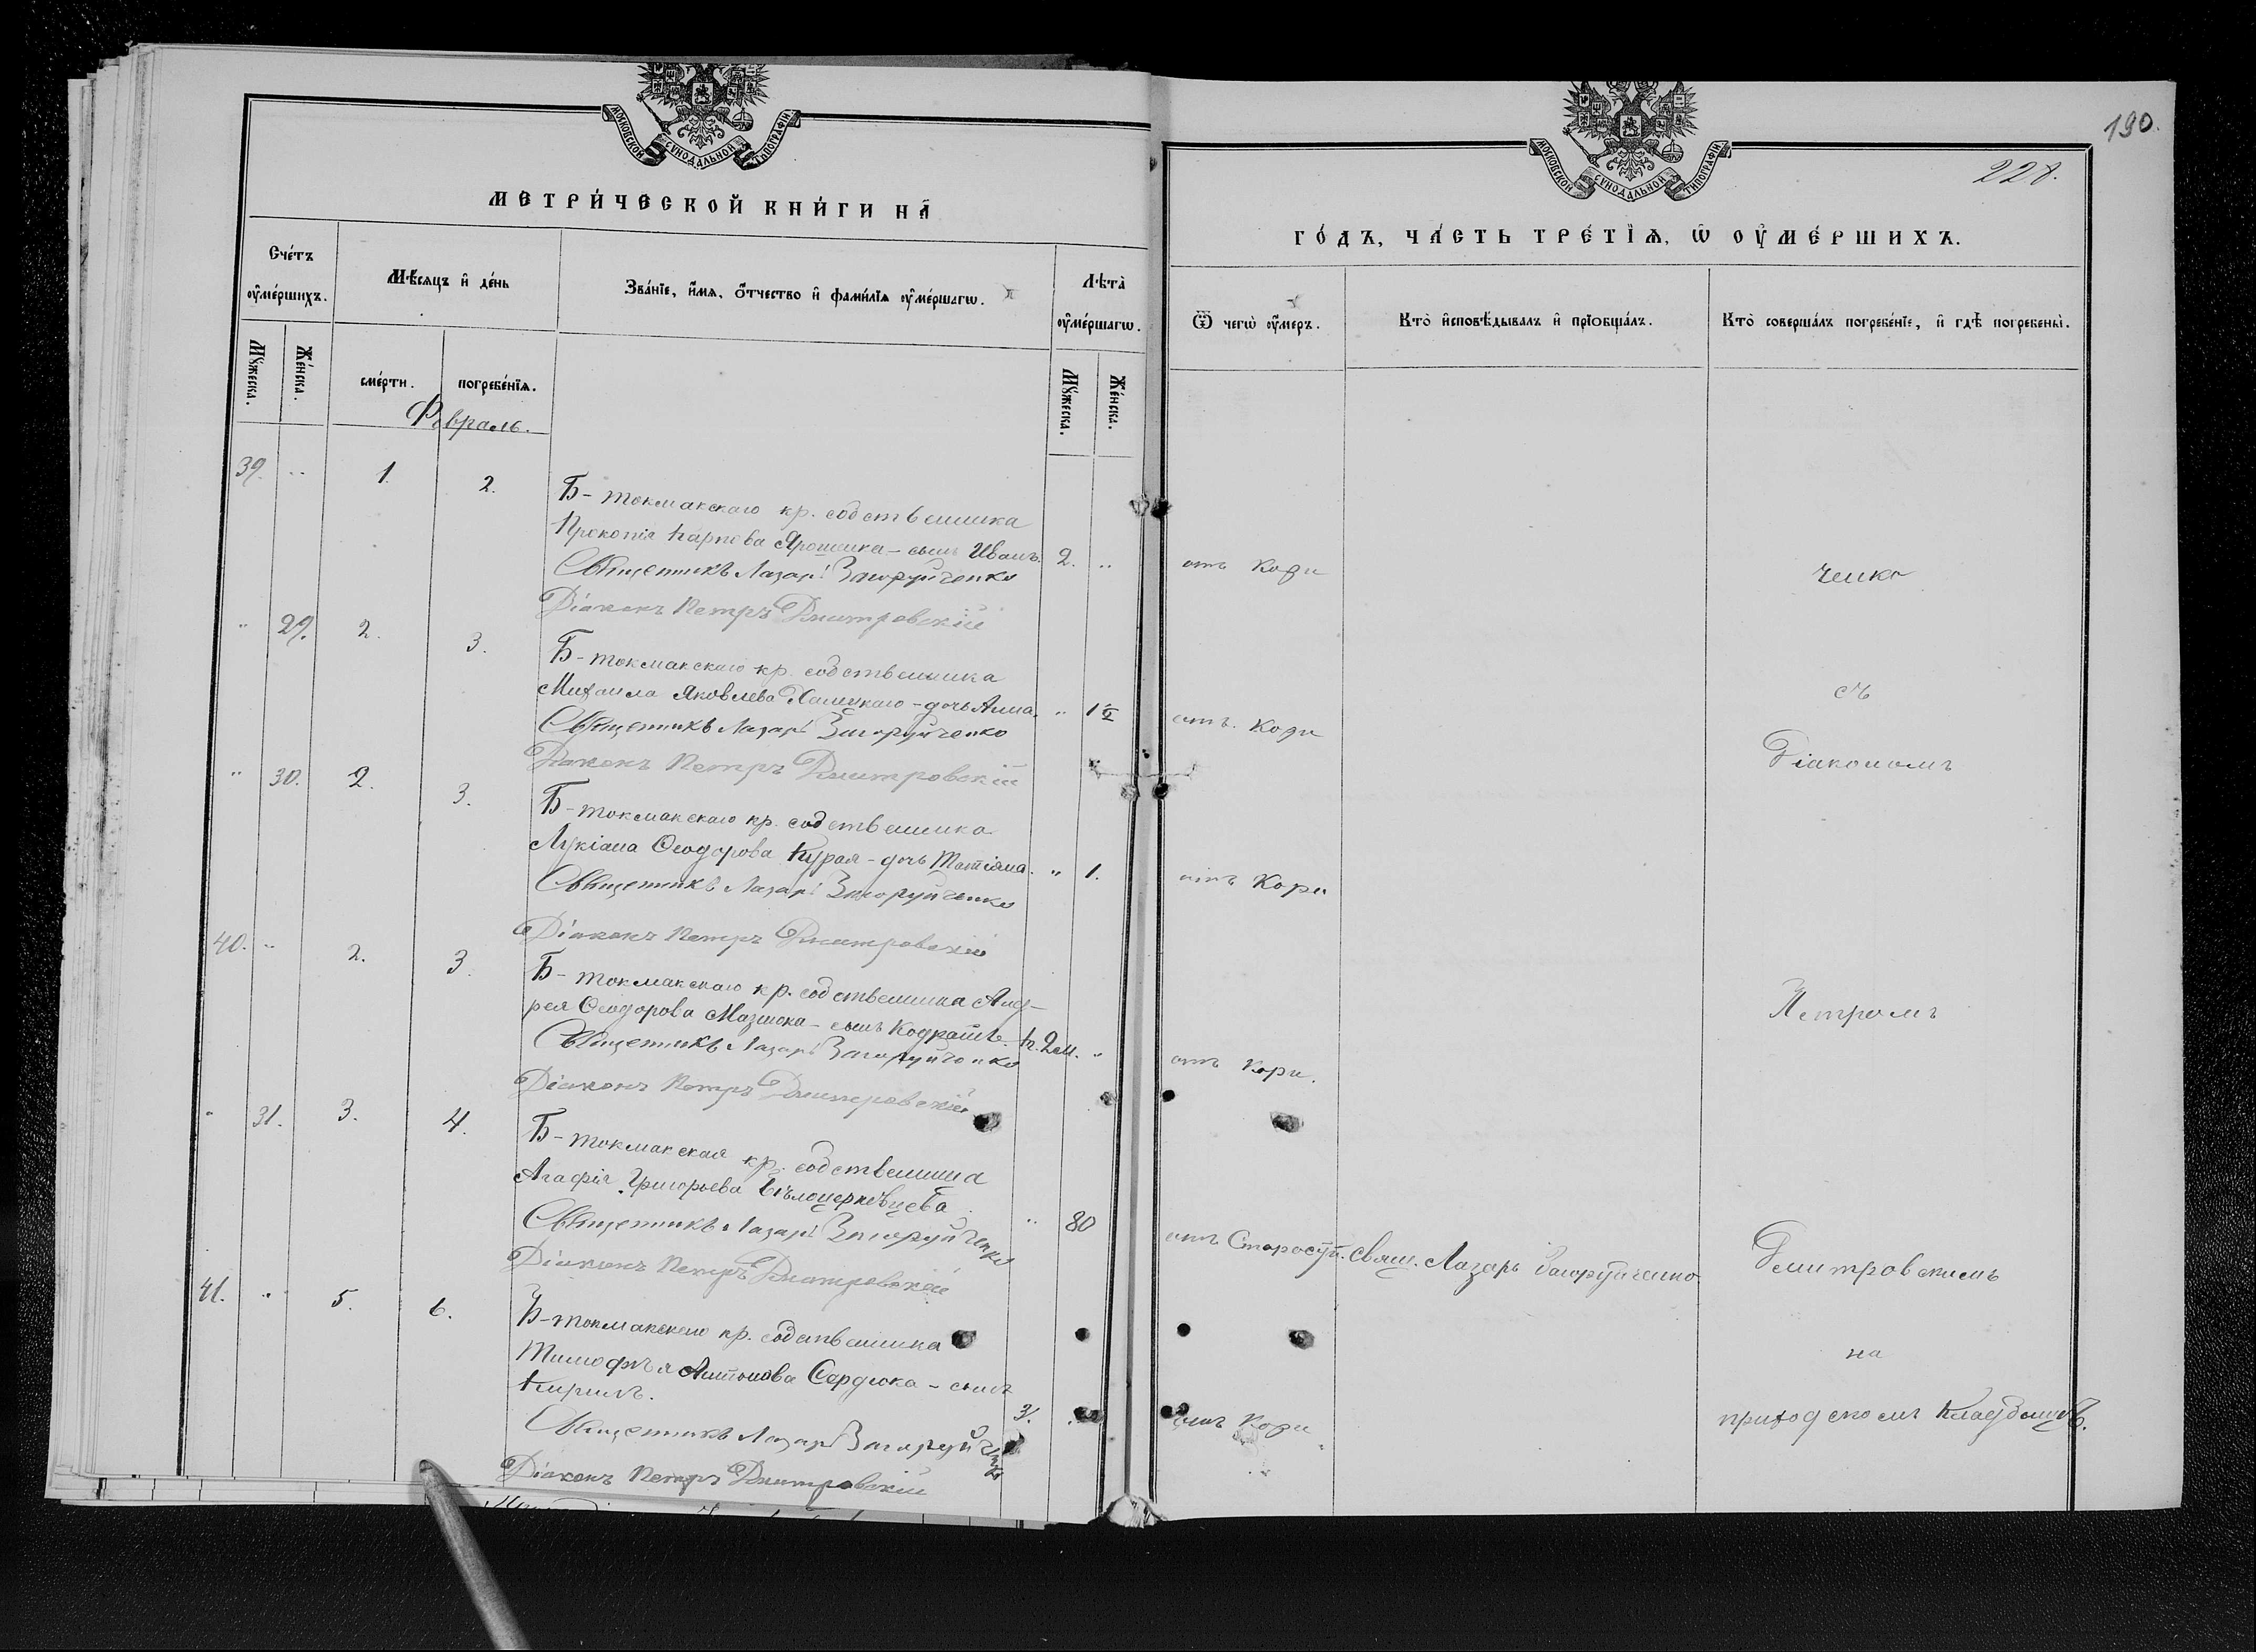 МОСКОВСКОЙ СѴНОДАЛЬНОЙ ТИПОГРАФІИ
МЕТРИ́ЧЕСКОЙ КНИ́ГИ НА̀
Сче́тъ ᲂу҆ме́ршихъ.
Мꙋ́жеска.
Же́нска.
Мѣ́сяцъ и҆ де́нь
сме́рти.
погребе́нїѧ.
Зва́нїе, и҆́мѧ, ѻ҆́тчество и҆ фами́лїѧ ᲂу҆ме́ршагѡ.
Лѣ́та ᲂу҆ме́ршагѡ.
Мꙋ́жеска.
Же́нска.
Февраль.
39. " 1. 2.
Б-токмакскаго кр. собственника
Прокопія Карпова Ярошенка - сынъ Иванъ. 2. "
Священникъ Лазарь Загоруйченко
Діаконъ Петръ Дмитровскій
" 29. 2. 3.
Б-токмакскаго кр. собственника
Михаила Яковлева - дочь Анна. " 1
Священникъ Лазарь Загоруйченко
Діаконъ Петръ Дмитровскій
" 30. 2. 3.
Б-токмакскаго кр. собственника
Лукіана Ѳеодорова Курая - дочь Татіяна. " 1.
Священникъ Лазарь Загоруйченко
Діаконъ Петръ Дмитровскій
40. " 2. 3.
Б-токмакскаго кр. собственника Анд-
рея Ѳеодорова Мазнюка - сынъ Кодратъ. 2 м. "
Священникъ Лазарь Загоруйченко
Діаконъ Петръ Дмитровскій
" 31. 3. 4.
Б-токмакская кр. собственница
Агафія Григорьева Бѣлоцерковцева. " 80
Священникъ Лазарь Загоруйченко
Діаконъ Петръ Дмитровскій
41. " 5. 6.
Б-токмакскаго кр. собственника
Тимофѣя Антонова Сердюка - сынъ
Кирилъ. 3.
Священникъ Лазарь Загоруйченко
Діаконъ Петръ Дмитровскій
190.
228.
МОСКОВСКОЙ СѴНОДАЛЬНОЙ ТИПОГРАФІИ
ГО́ДЪ, ЧА́СТЬ ТРЕ́ТЇѦ, Ѡ҆ ОУ҆МЕ́РШИХЪ.
Ѿ чегѡ̀ ᲂу҆́меръ.
Кто̀ и҆сповѣ́дывалъ и҆ прїобща́лъ.
Кто̀ соверша́лъ погребе́нїе, и҆ гдѣ̀ погребены̀.
отъ Кори
ченко
съ
отъ Кори
Діакономъ
отъ Кори
Петромъ
отъ Кори.
отъ Старости. Свящ. Лазарь Загоруйченко.
Дмитровскимъ
на
отъ Кори
приходскомъ Кладбищѣ.